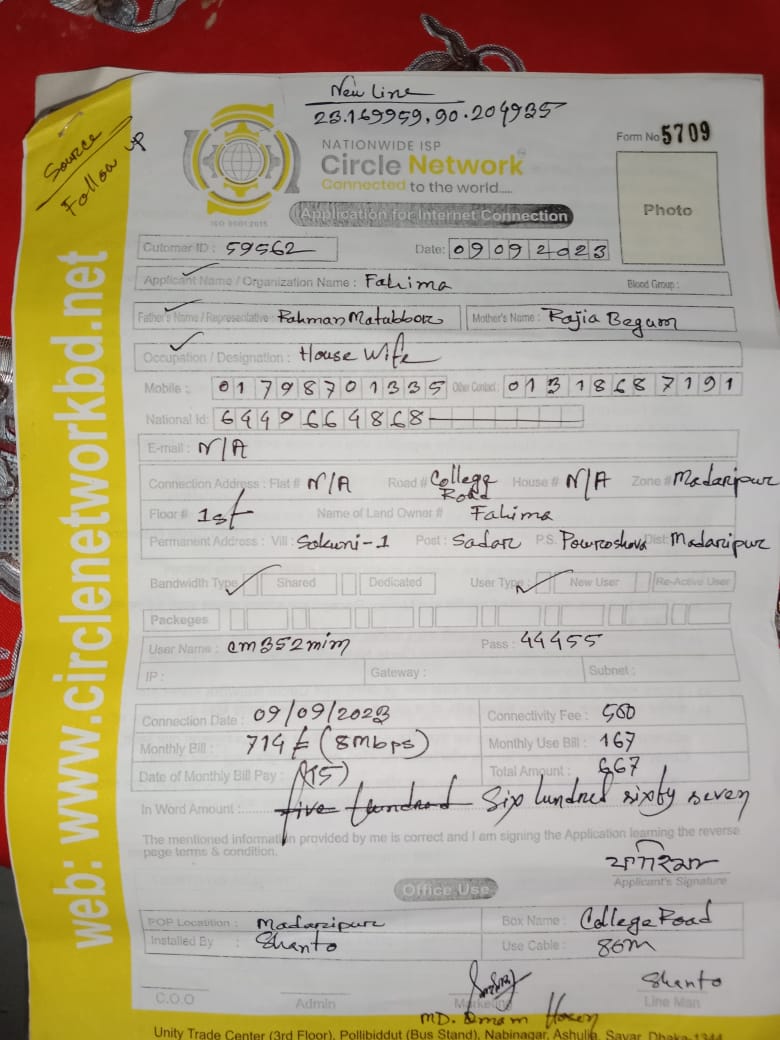 New Line
23.169959, 90.204935
Source
Follow up
NATIONWIDE ISP
Circle Network
Connected to the world.....
ISO 9001:2015
Form No 5709
Photo
Application for Internet Connection
Cutomer ID : 59562 Date: 09092023
Applicant Name / Organization Name : Fahima Blood Group :
Father's Name / Representative : Rahman Matabbor Mother's Name : Rajia Begum
Occupation / Designation : House Wife
Mobile : 01798701335 Other Contact : 01318687191
National Id: 6449664868
E-mail : N/A
Connection Address : Flat # N/A Road # College Road House # N/A Zone # Madaripur
Floor # 1st Name of Land Owner # Fahima
Permanent Address : Vill : Sokuni-1 Post : Sadar P.S. Powroshova Dist: Madaripur
Bandwidth Type Shared Dedicated User Type : New User Re-Active User
Packeges
User Name : cm352mim Pass : 44455
IP : Gateway : Subnet :
Connection Date : 09/09/2023 Connectivity Fee : 500
Monthly Bill : 714/= (8Mbps) Monthly Use Bill : 167
Date of Monthly Bill Pay : Total Amount : 667
In Word Amount : five hundred Six hundred sixty seven
The mentioned information provided by me is correct and I am signing the Application learning the reverse
page terms & condition.
ফাহিমা
Applicant's Signature
Office Use
POP Locatition : Madaripur Box Name : College Road
Installed By : Shanto Use Cable : 86m
Shanto
C.O.O Admin Marketing Line Man
MD. Emam Hosen
Unity Trade Center (3rd Floor), Pollibiddut (Bus Stand), Nabinagar, Ashulia, Savar, Dhaka-1344
web: www.circlenetworkbd.net